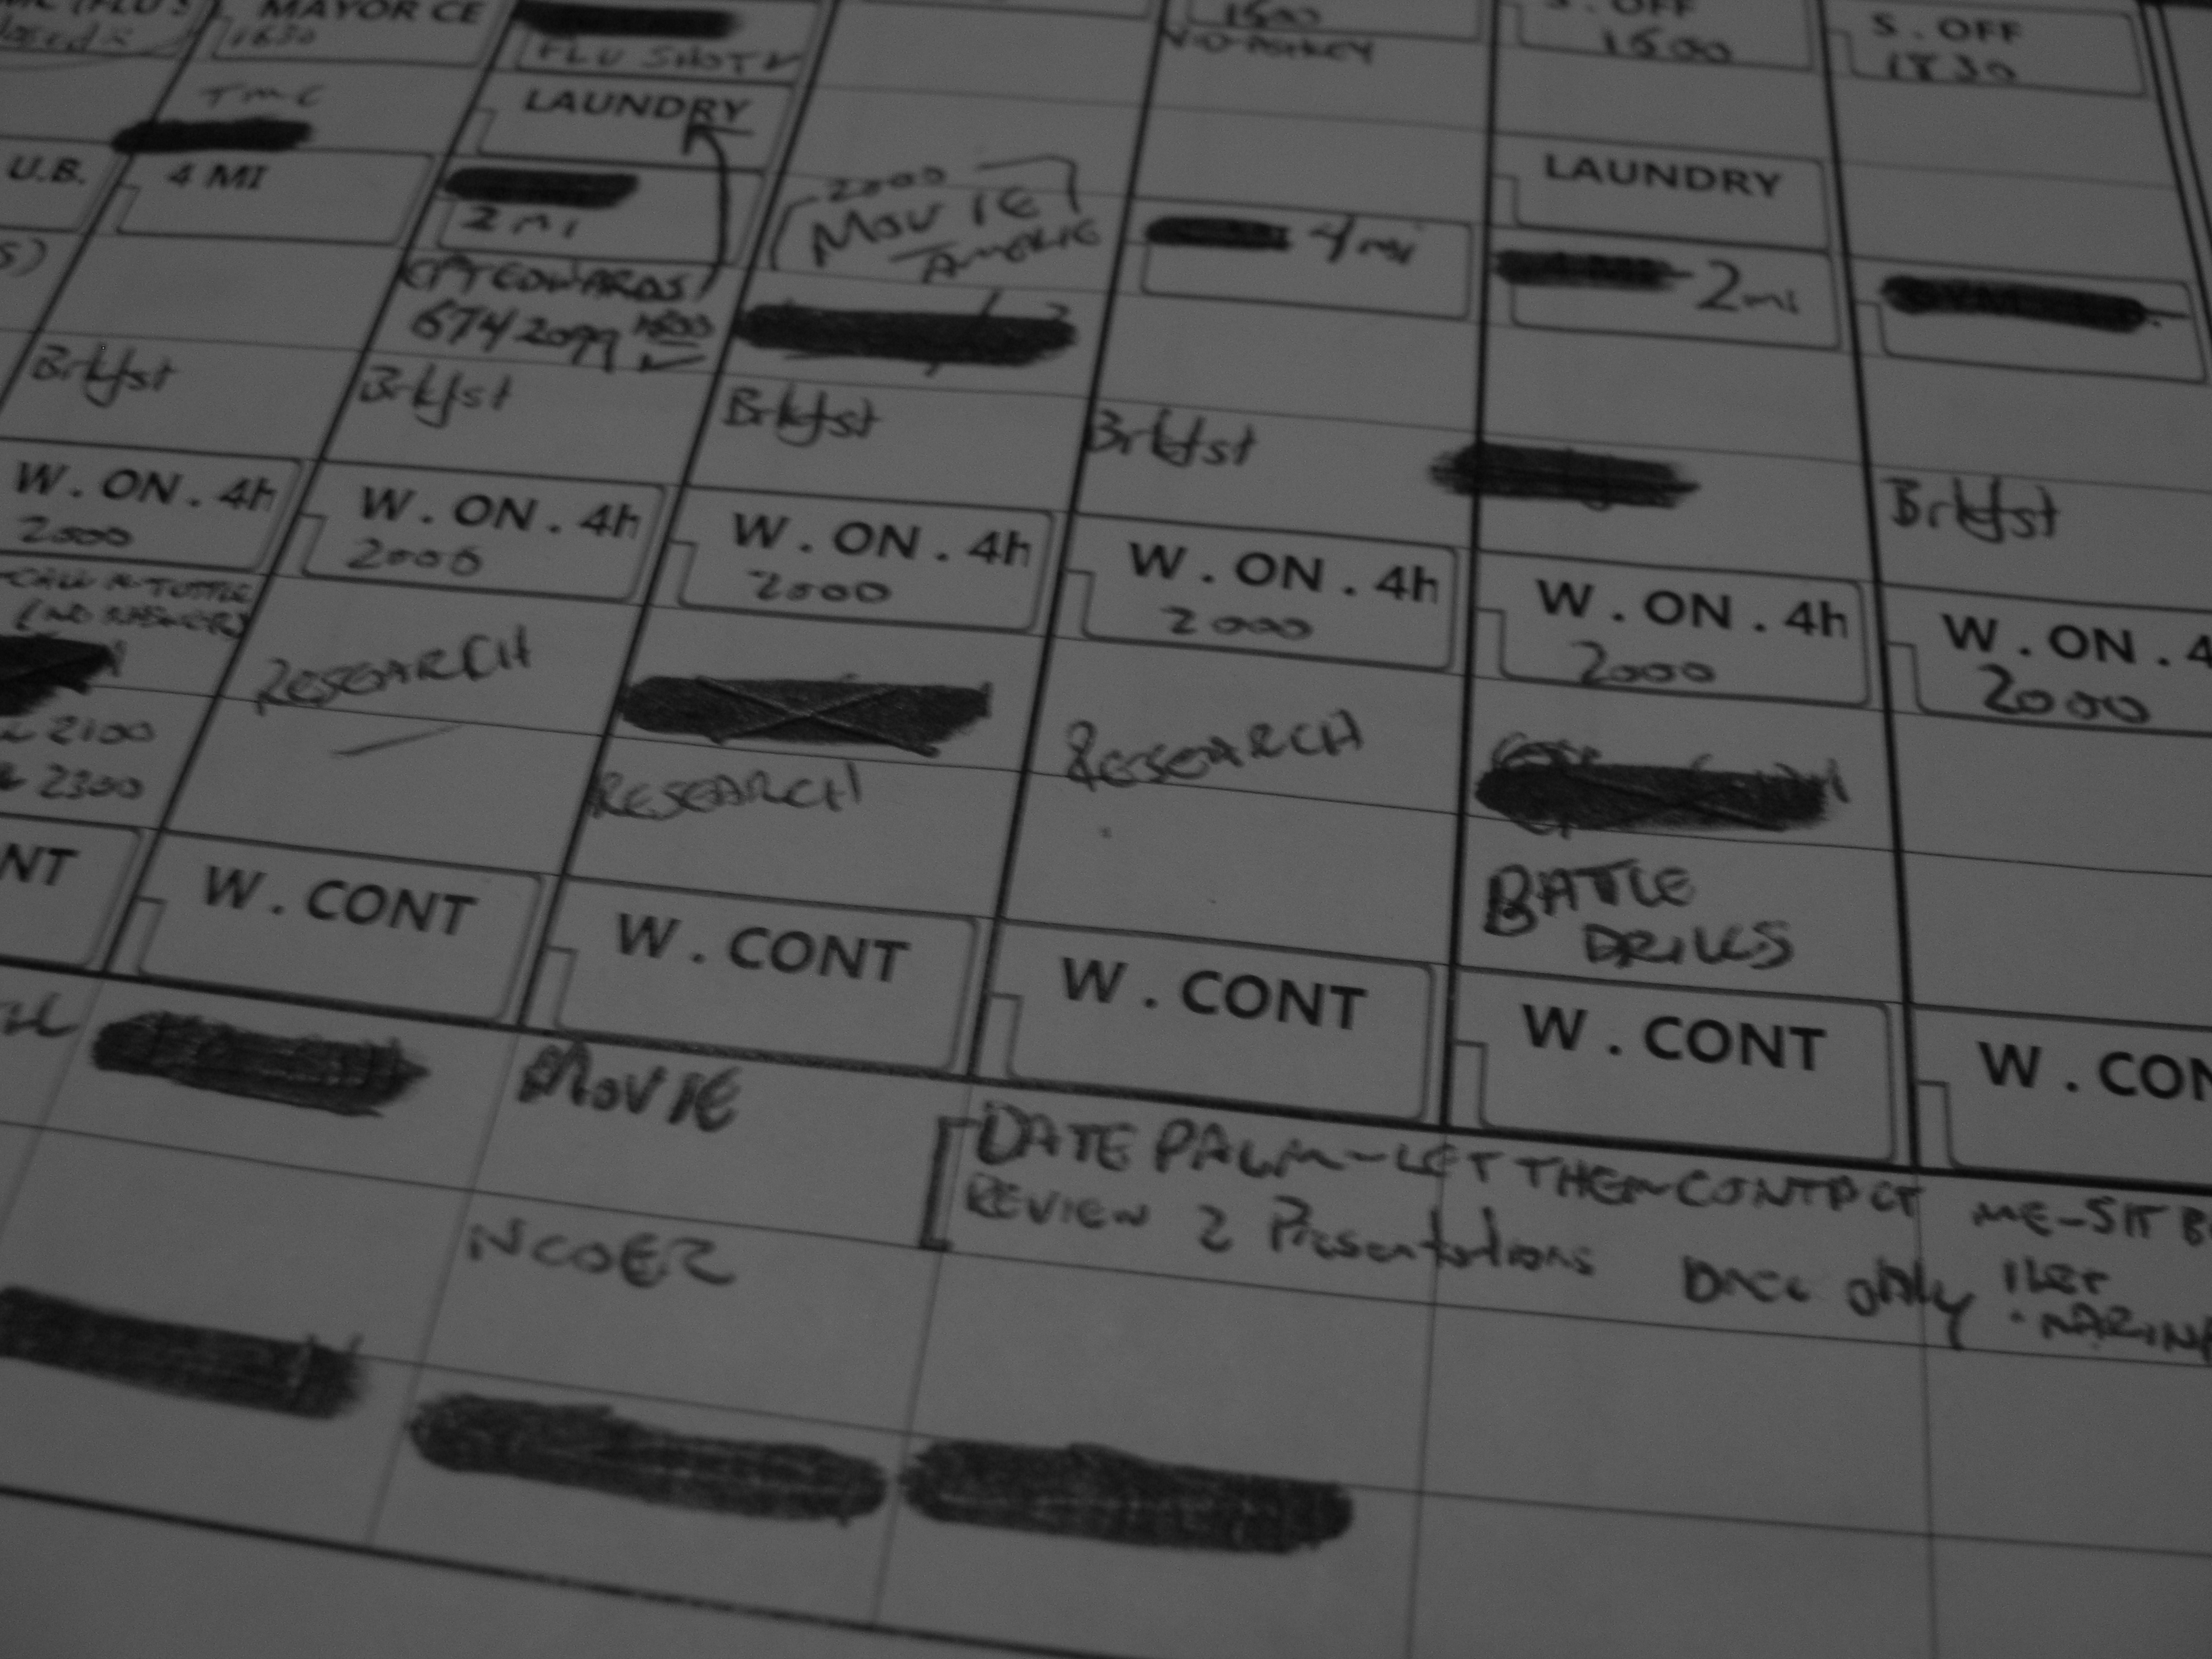 MAYOR CE
1630
FLU SHOT ✓
1500
S. OFF
1600
S. OFF
1830
TMC
LAUNDRY
LAUNDRY
U.B.
4 MI
2 MI
2000
MOVIE
4 MI
2 mi
CPT EDWARDS
674 2099 1800
Brkfst
Brkfst
Brkfst
Brkfst
Brkfst
W . ON . 4h
2000
W . ON . 4h
2000
W . ON . 4h
2000
W . ON . 4h
2000
W . ON . 4h
2000
W . ON . 4
2000
CALL A-TUTTLE
(NO ANSWER)
RESEARCH
RESEARCH
RESEARCH
2100
2300
BATTLE
DRILLS
NT
W . CONT
W . CONT
W . CONT
W . CONT
W . CON
MOVIE
DATE PALM - LET THEM CONTACT ME - SIT B
REVIEW 2 Presentations
NCOER